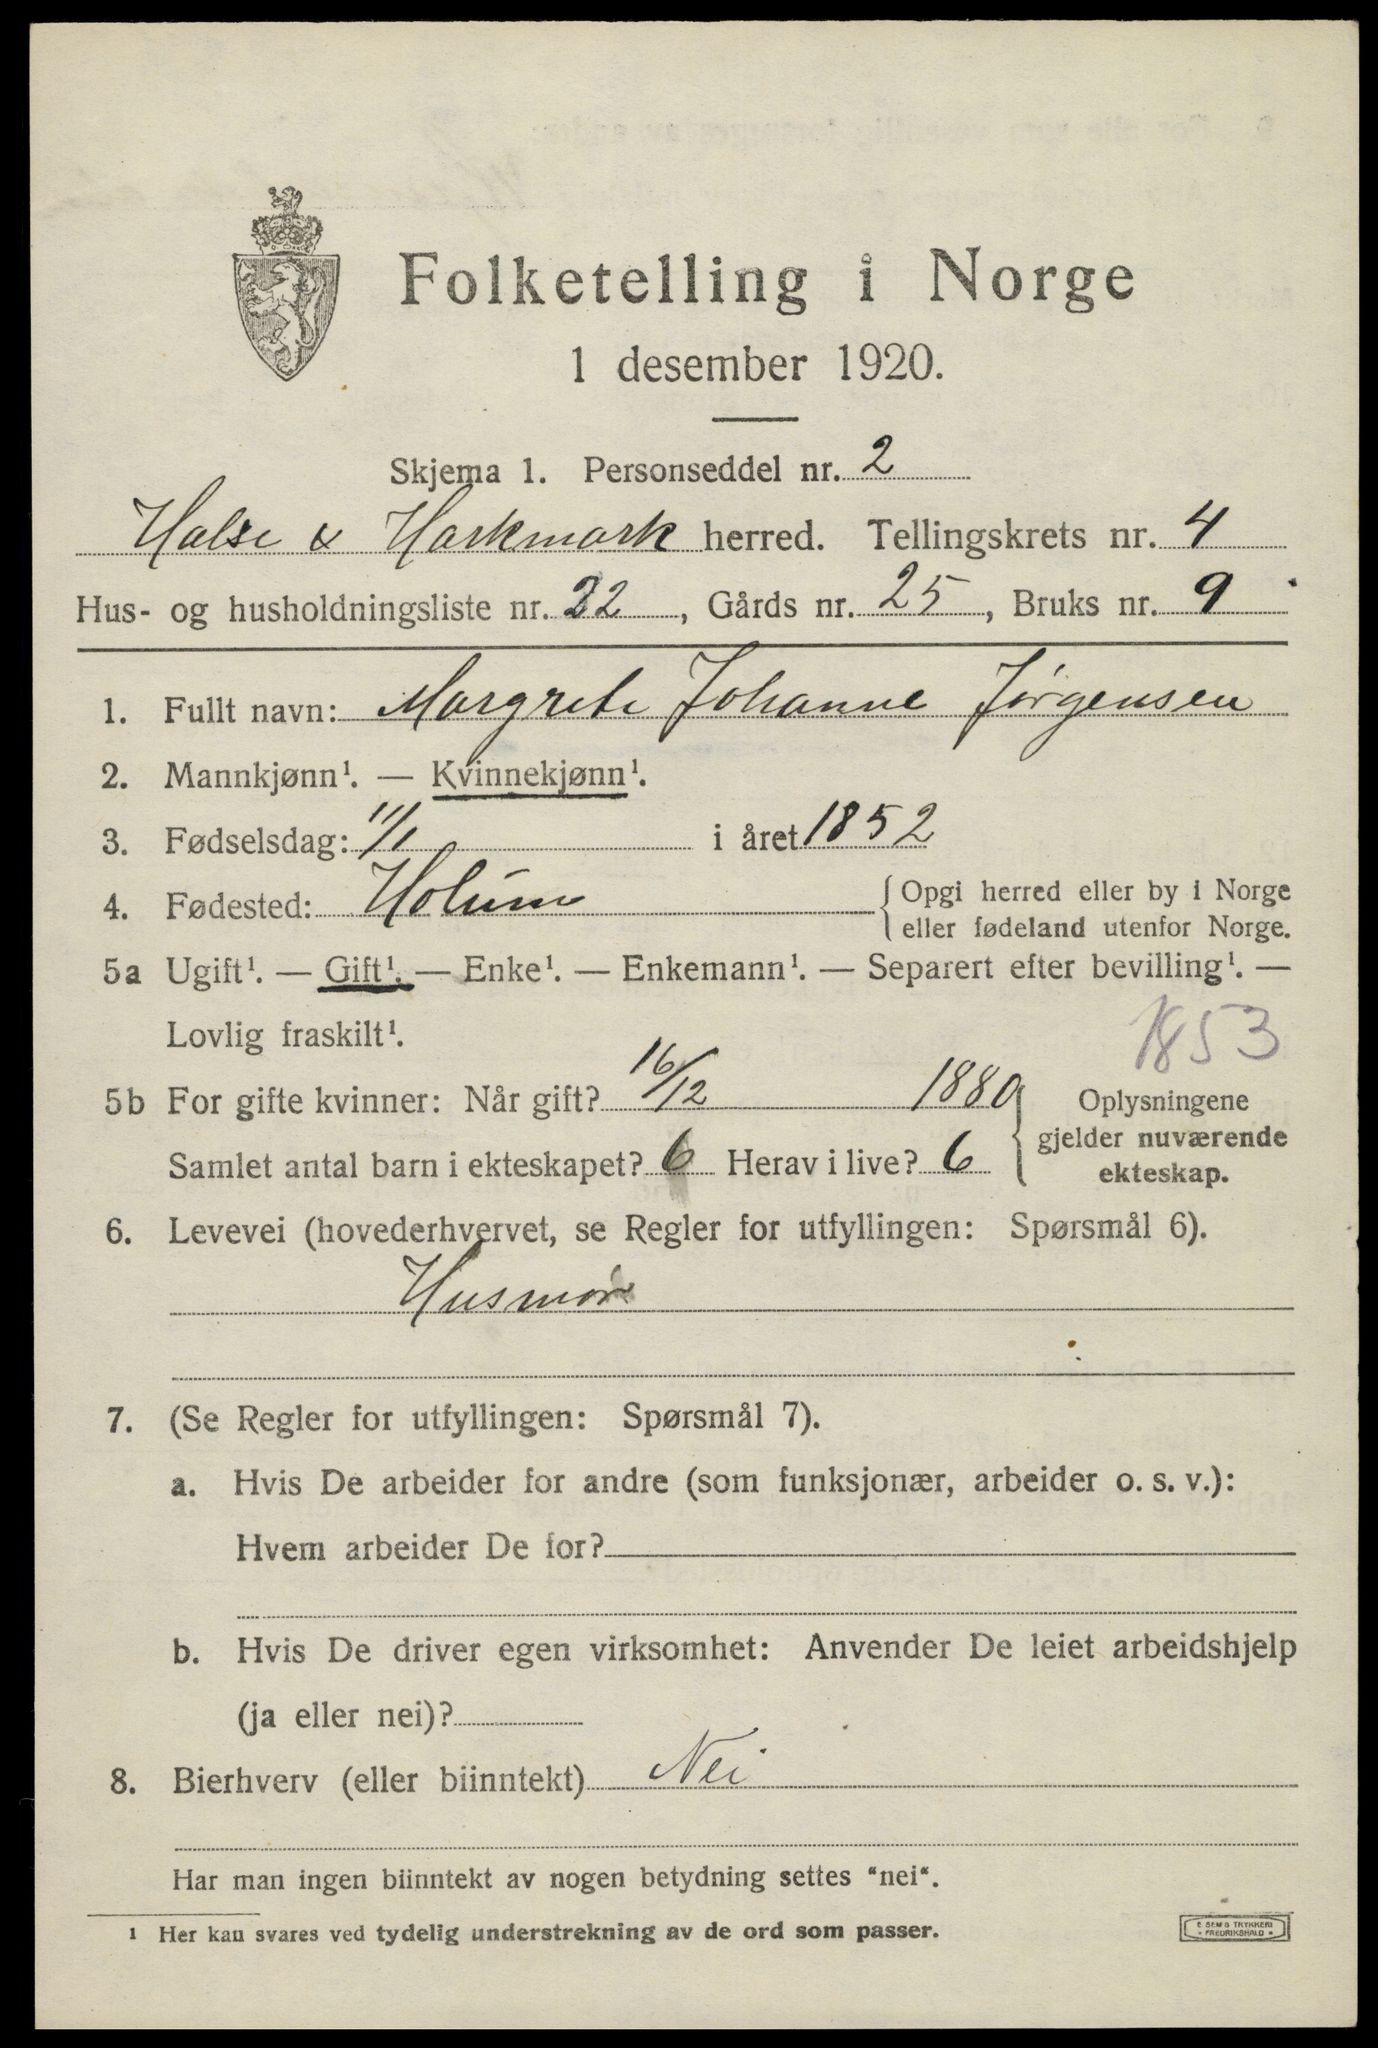 Folketelling i Norge
1 desember 1920.
Skjema 1. Personseddel nr. 2
Halse & Harkmark herred. Tellingskrets nr. 4
Hus- og husholdningsliste nr. 22, Gårds nr. 25, Bruks nr. 9
1. Fullt navn: Margrete Johanne Jørgensen
2. Mannkjønn¹. — Kvinnekjønn¹.
3. Fødselsdag: 11/1 i året 1852
4. Fødested: Holum {Opgi herred eller by i Norge
eller fødeland utenfor Norge.
5a Ugift¹. — Gift¹. — Enke¹. — Enkemann¹. — Separert efter bevilling¹. —
Lovlig fraskilt¹.
1853
5b For gifte kvinner: Når gift? 16/12 1880 } Oplysningene
Samlet antal barn i ekteskapet? 6 Herav i live? 6 gjelder nuværende
ekteskap.
6. Levevei (hovederhvervet, se Regler for utfyllingen: Spørsmål 6).
Husmor
7. (Se Regler for utfyllingen: Spørsmål 7).
a. Hvis De arbeider for andre (som funksjonær, arbeider o. s. v.):
Hvem arbeider De for?
b. Hvis De driver egen virksomhet: Anvender De leiet arbeidshjelp
(ja eller nei)?
8. Bierhverv (eller biinntekt) Nei
Har man ingen biinntekt av nogen betydning settes "nei".
¹ Her kan svares ved tydelig understrekning av de ord som passer.
E SEM S TRYKKERI
FREDRIKSHALD